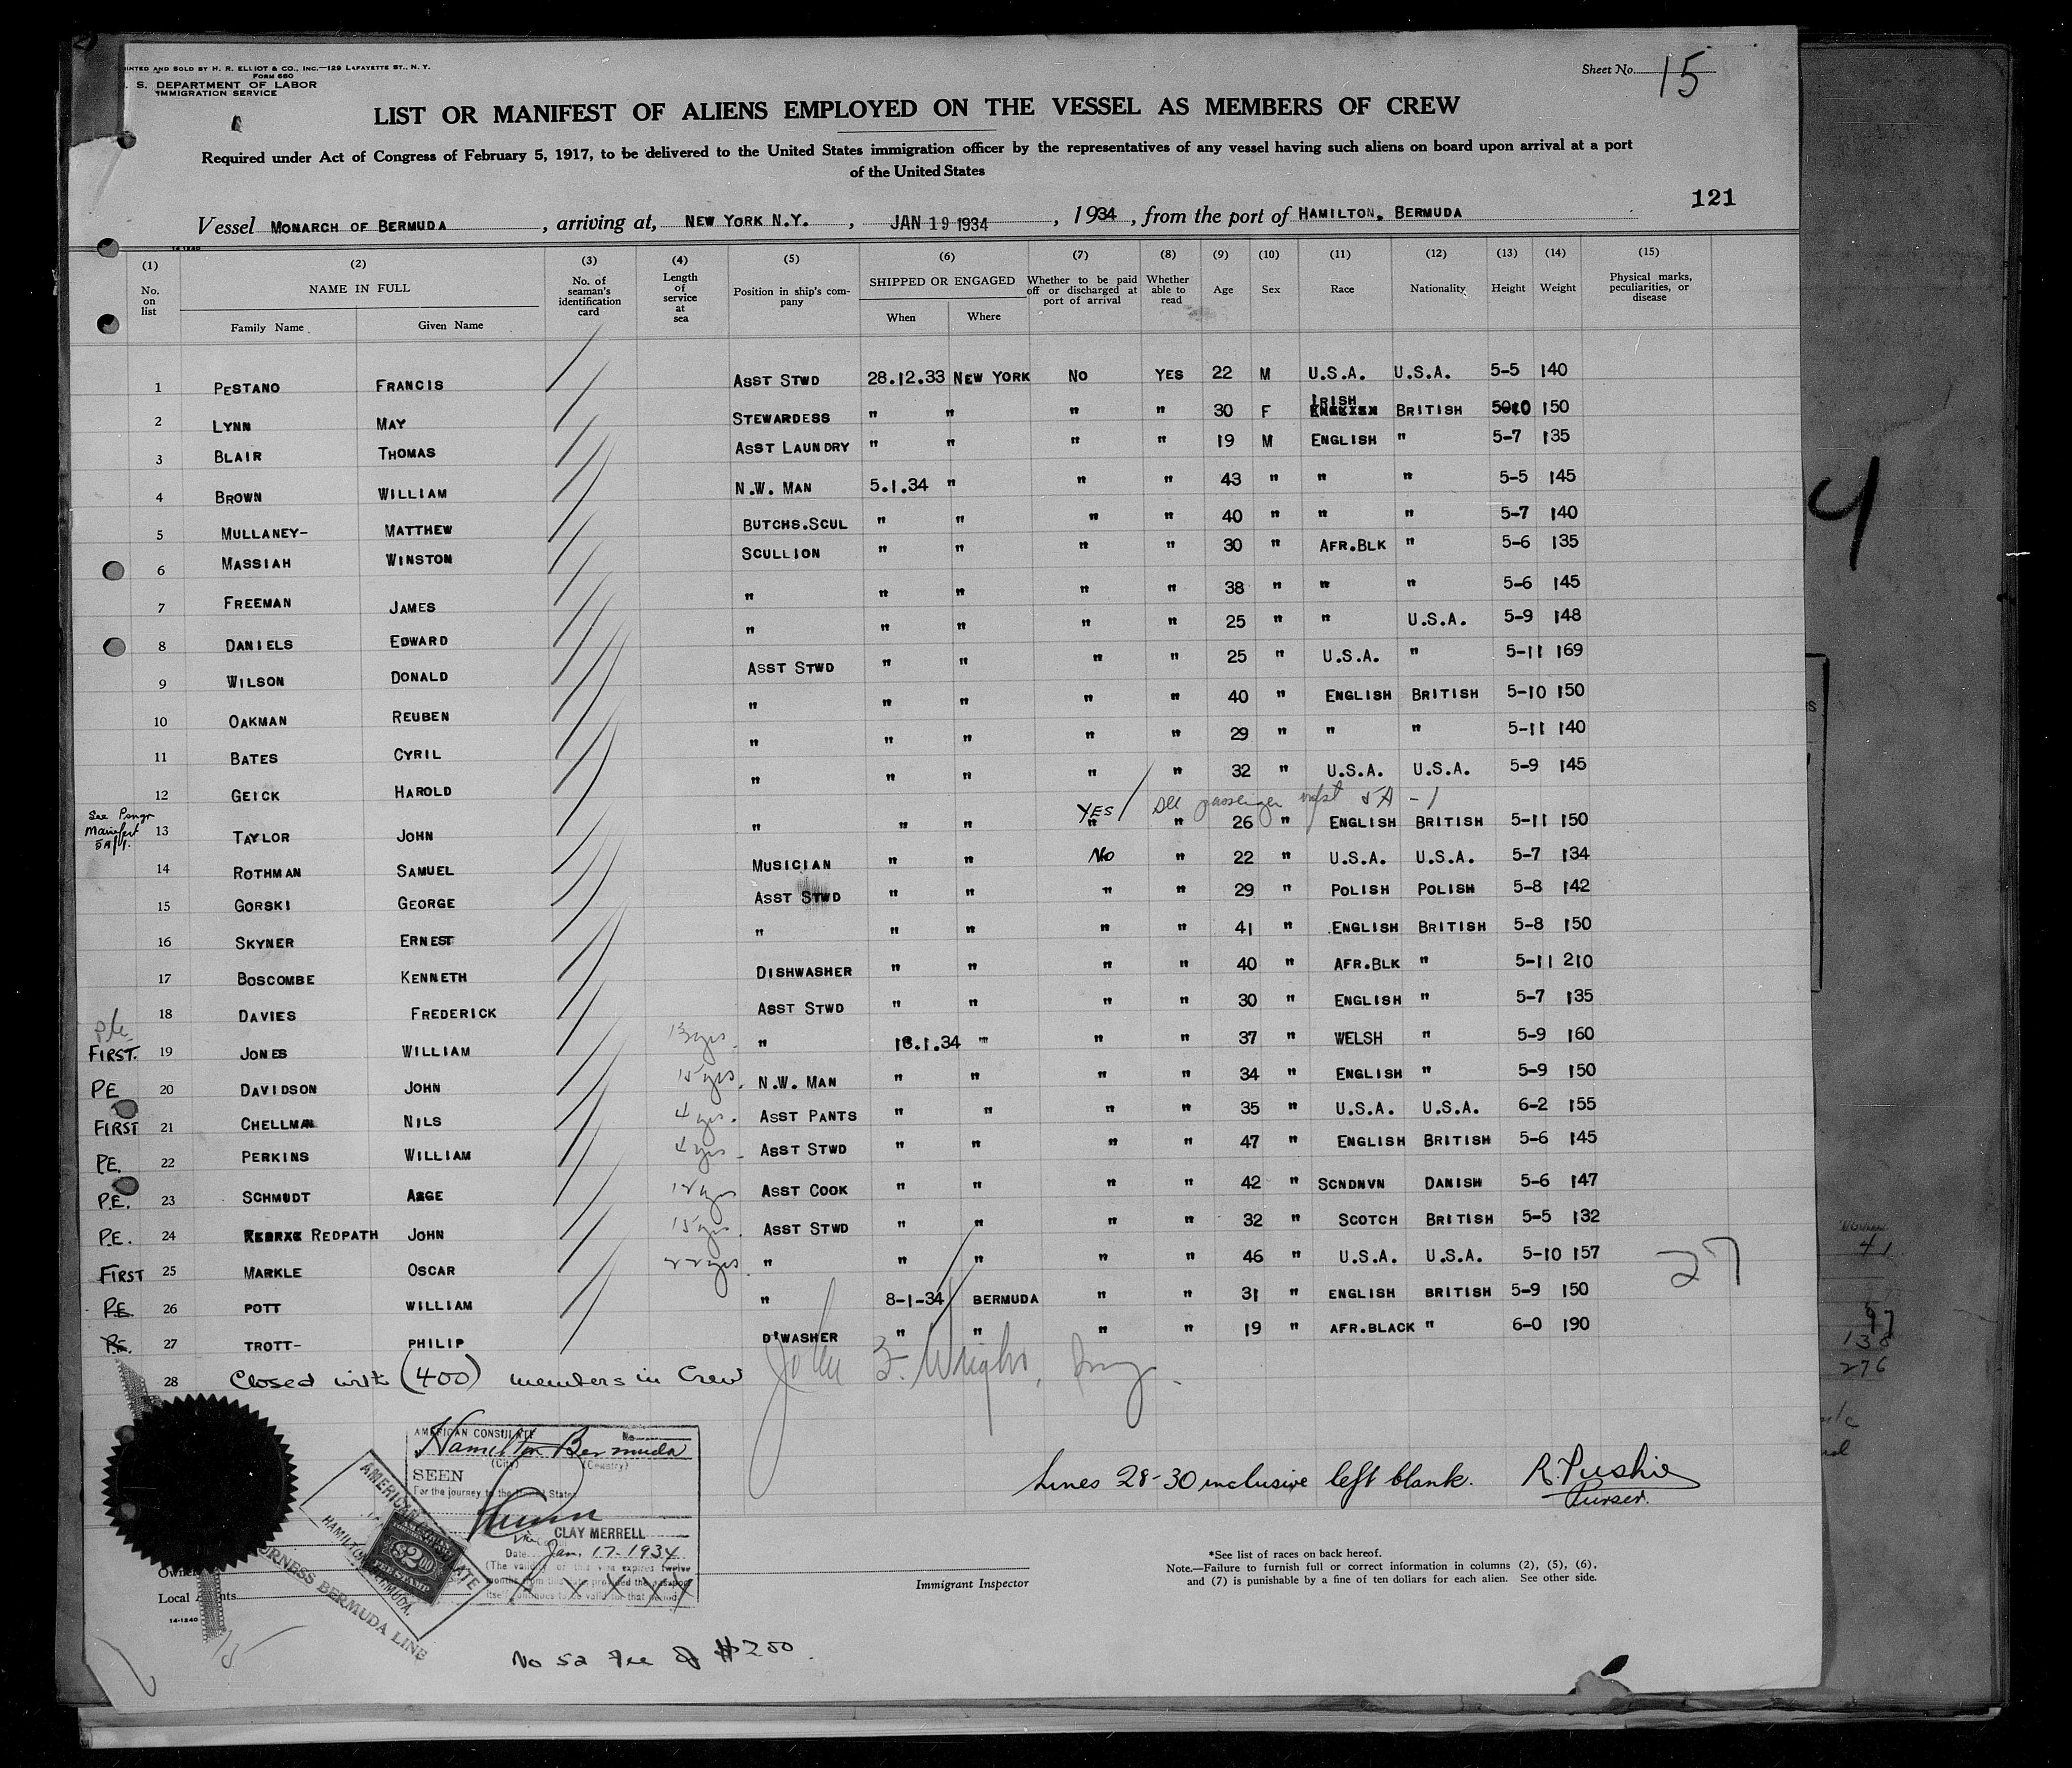 PRINTED AND SOLD BY H. R. ELLIOT & CO., INC.—129 LAFAYETTE ST., N. Y.
FORM 680
S. DEPARTMENT OF LABOR
IMMIGRATION SERVICE
Sheet No. 15
LIST OR MANIFEST OF ALIENS EMPLOYED ON THE VESSEL AS MEMBERS OF CREW
Required under Act of Congress of February 5, 1917, to be delivered to the United States immigration officer by the representatives of any vessel having such aliens on board upon arrival at a port
of the United States
121
Vessel MONARCH OF BERMUDA, arriving at, NEW YORK N.Y., JAN 19 1934, 1934, from the port of HAMILTON, BERMUDA
14-1240
(1) No. on list (2) NAME IN FULL Family Name Given Name (3) No. of seaman's identification card (4) Length of service at sea (5) Position in ship's company (6) SHIPPED OR ENGAGED When Where (7) Whether to be paid off or discharged at port of arrival (8) Whether able to read (9) Age (10) Sex (11) Race (12) Nationality (13) Height (14) Weight (15) Physical marks, peculiarities, or disease
1 PESTANO FRANCIS ASST STWD 28.12.33 NEW YORK NO YES 22 M U.S.A. U.S.A. 5-5 140
2 LYNN MAY STEWARDESS " " " " 30 F IRISH BRITISH 150
3 BLAIR THOMAS ASST LAUNDRY " " " " 19 M ENGLISH " 5-7 135
4 BROWN WILLIAM N.W. MAN 5.1.34 " " " 43 " " " 5-5 145
5 MULLANEY- MATTHEW BUTCHS.SCUL " " " " 40 " " " 5-7 140
6 MASSIAH WINSTON SCULLION " " " " 30 " AFR.BLK " 5-6 135
7 FREEMAN JAMES " " " " " 38 " " " 5-6 145
8 DANIELS EDWARD " " " " " 25 " " U.S.A. 5-9 148
9 WILSON DONALD ASST STWD " " " " 25 " U.S.A. " 5-11 169
10 OAKMAN REUBEN " " " " " 40 " ENGLISH BRITISH 5-10 150
11 BATES CYRIL " " " " " 29 " " " 5-11 140
12 GEICK HAROLD " " " " " 32 " U.S.A. U.S.A. 5-9 145
YES / See passenger mfst 5A - 1
See Psngr Manifest 5A/1. 13 TAYLOR JOHN " " " " " 26 " ENGLISH BRITISH 5-11 150
14 ROTHMAN SAMUEL MUSICIAN " " No " 22 " U.S.A. U.S.A. 5-7 134
15 GORSKI GEORGE ASST STWD " " " " 29 " POLISH POLISH 5-8 142
16 SKYNER ERNEST " " " " " 41 " ENGLISH BRITISH 5-8 150
17 BOSCOMBE KENNETH DISHWASHER " " " " 40 " AFR.BLK " 5-11 210
18 DAVIES FREDERICK ASST STWD " " " " 30 " ENGLISH " 5-7 135
FIRST. 19 JONES WILLIAM 13 yrs. " 18.1.34 " " " 37 " WELSH " 5-9 160
P.E. 20 DAVIDSON JOHN 15 yrs. N.W. MAN " " " " 34 " ENGLISH " 5-9 150
FIRST 21 CHELLMAN NILS 4 yrs. ASST PANTS " " " " 35 " U.S.A. U.S.A. 6-2 155
P.E. 22 PERKINS WILLIAM 4 yrs. ASST STWD " " " " 47 " ENGLISH BRITISH 5-6 145
P.E. 23 SCHMUDT AAGE 12 yrs ASST COOK " " " " 42 " SCNDNVN DANISH 5-6 147
P.E. 24 REDPATH JOHN 15 yrs. ASST STWD " " " " 32 " SCOTCH BRITISH 5-5 132
FIRST 25 MARKLE OSCAR 22 yrs. " " " " " 46 " U.S.A. U.S.A. 5-10 157
27
P.E. 26 POTT WILLIAM " 8-1-34 BERMUDA " " 31 " ENGLISH BRITISH 5-9 150
P.E. 27 TROTT- PHILIP D'WASHER " " " " 19 " AFR.BLACK " 6-0 190
28 Closed with (400) members in Crew
AMERICAN CONSULATE No
Hamilton Bermuda
(City) (Country)
SEEN
For the journey to the United States
Vice
CLAY MERRELL
Date Jan. 17-1934
(The validity of this visa expires twelve
Lines 28-30 inclusive left blank. R. Pushie
Purser.
AMERICAN CONSULATE
HAMILTON, BERMUDA.
$2.00
FEE STAMP
FURNESS BERMUDA LINE
Owner
Local Agents
14-1240
Immigrant Inspector
*See list of races on back hereof.
Note.—Failure to furnish full or correct information in columns (2), (5), (6),
and (7) is punishable by a fine of ten dollars for each alien. See other side.
No 52 Fee of $2.00.
4
41
97
138
276